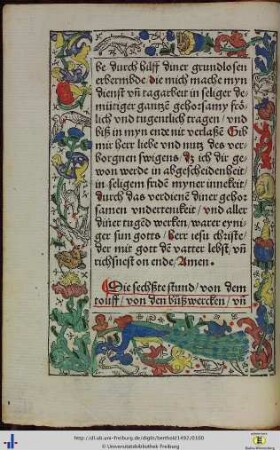 be durch hilff diner grundlosen
erbermbde die mich mache myn
dienst vn̄ tagarbeit in seliger de
mütiger gantzē gehorsamy frö
lich vnd tugentlich tragen / vnd
biß in myn ende nit verlaßē Gib
mir herr liebe vnd nutz des ver
borgnen swigens dz ich dir ge
won werde in abgescheidenheit /
in seligem fridē myner innekeit /
durch das verdienē diner gehor
samen vndertenikeit / vnd aller
diner tugēd wercken / warer eyni
ger sun gotts / herr iesu christe /
der mit gott dē vatter lebst vn̄
richsnest on ende / Amen ⁊
Die sechßte stund / von dem
touff / von den bůßwercken / vn̄
http://dl.ub.uni-freiburg.de/diglit/berthold1492/0100
© Universitätsbibliothek Freiburg